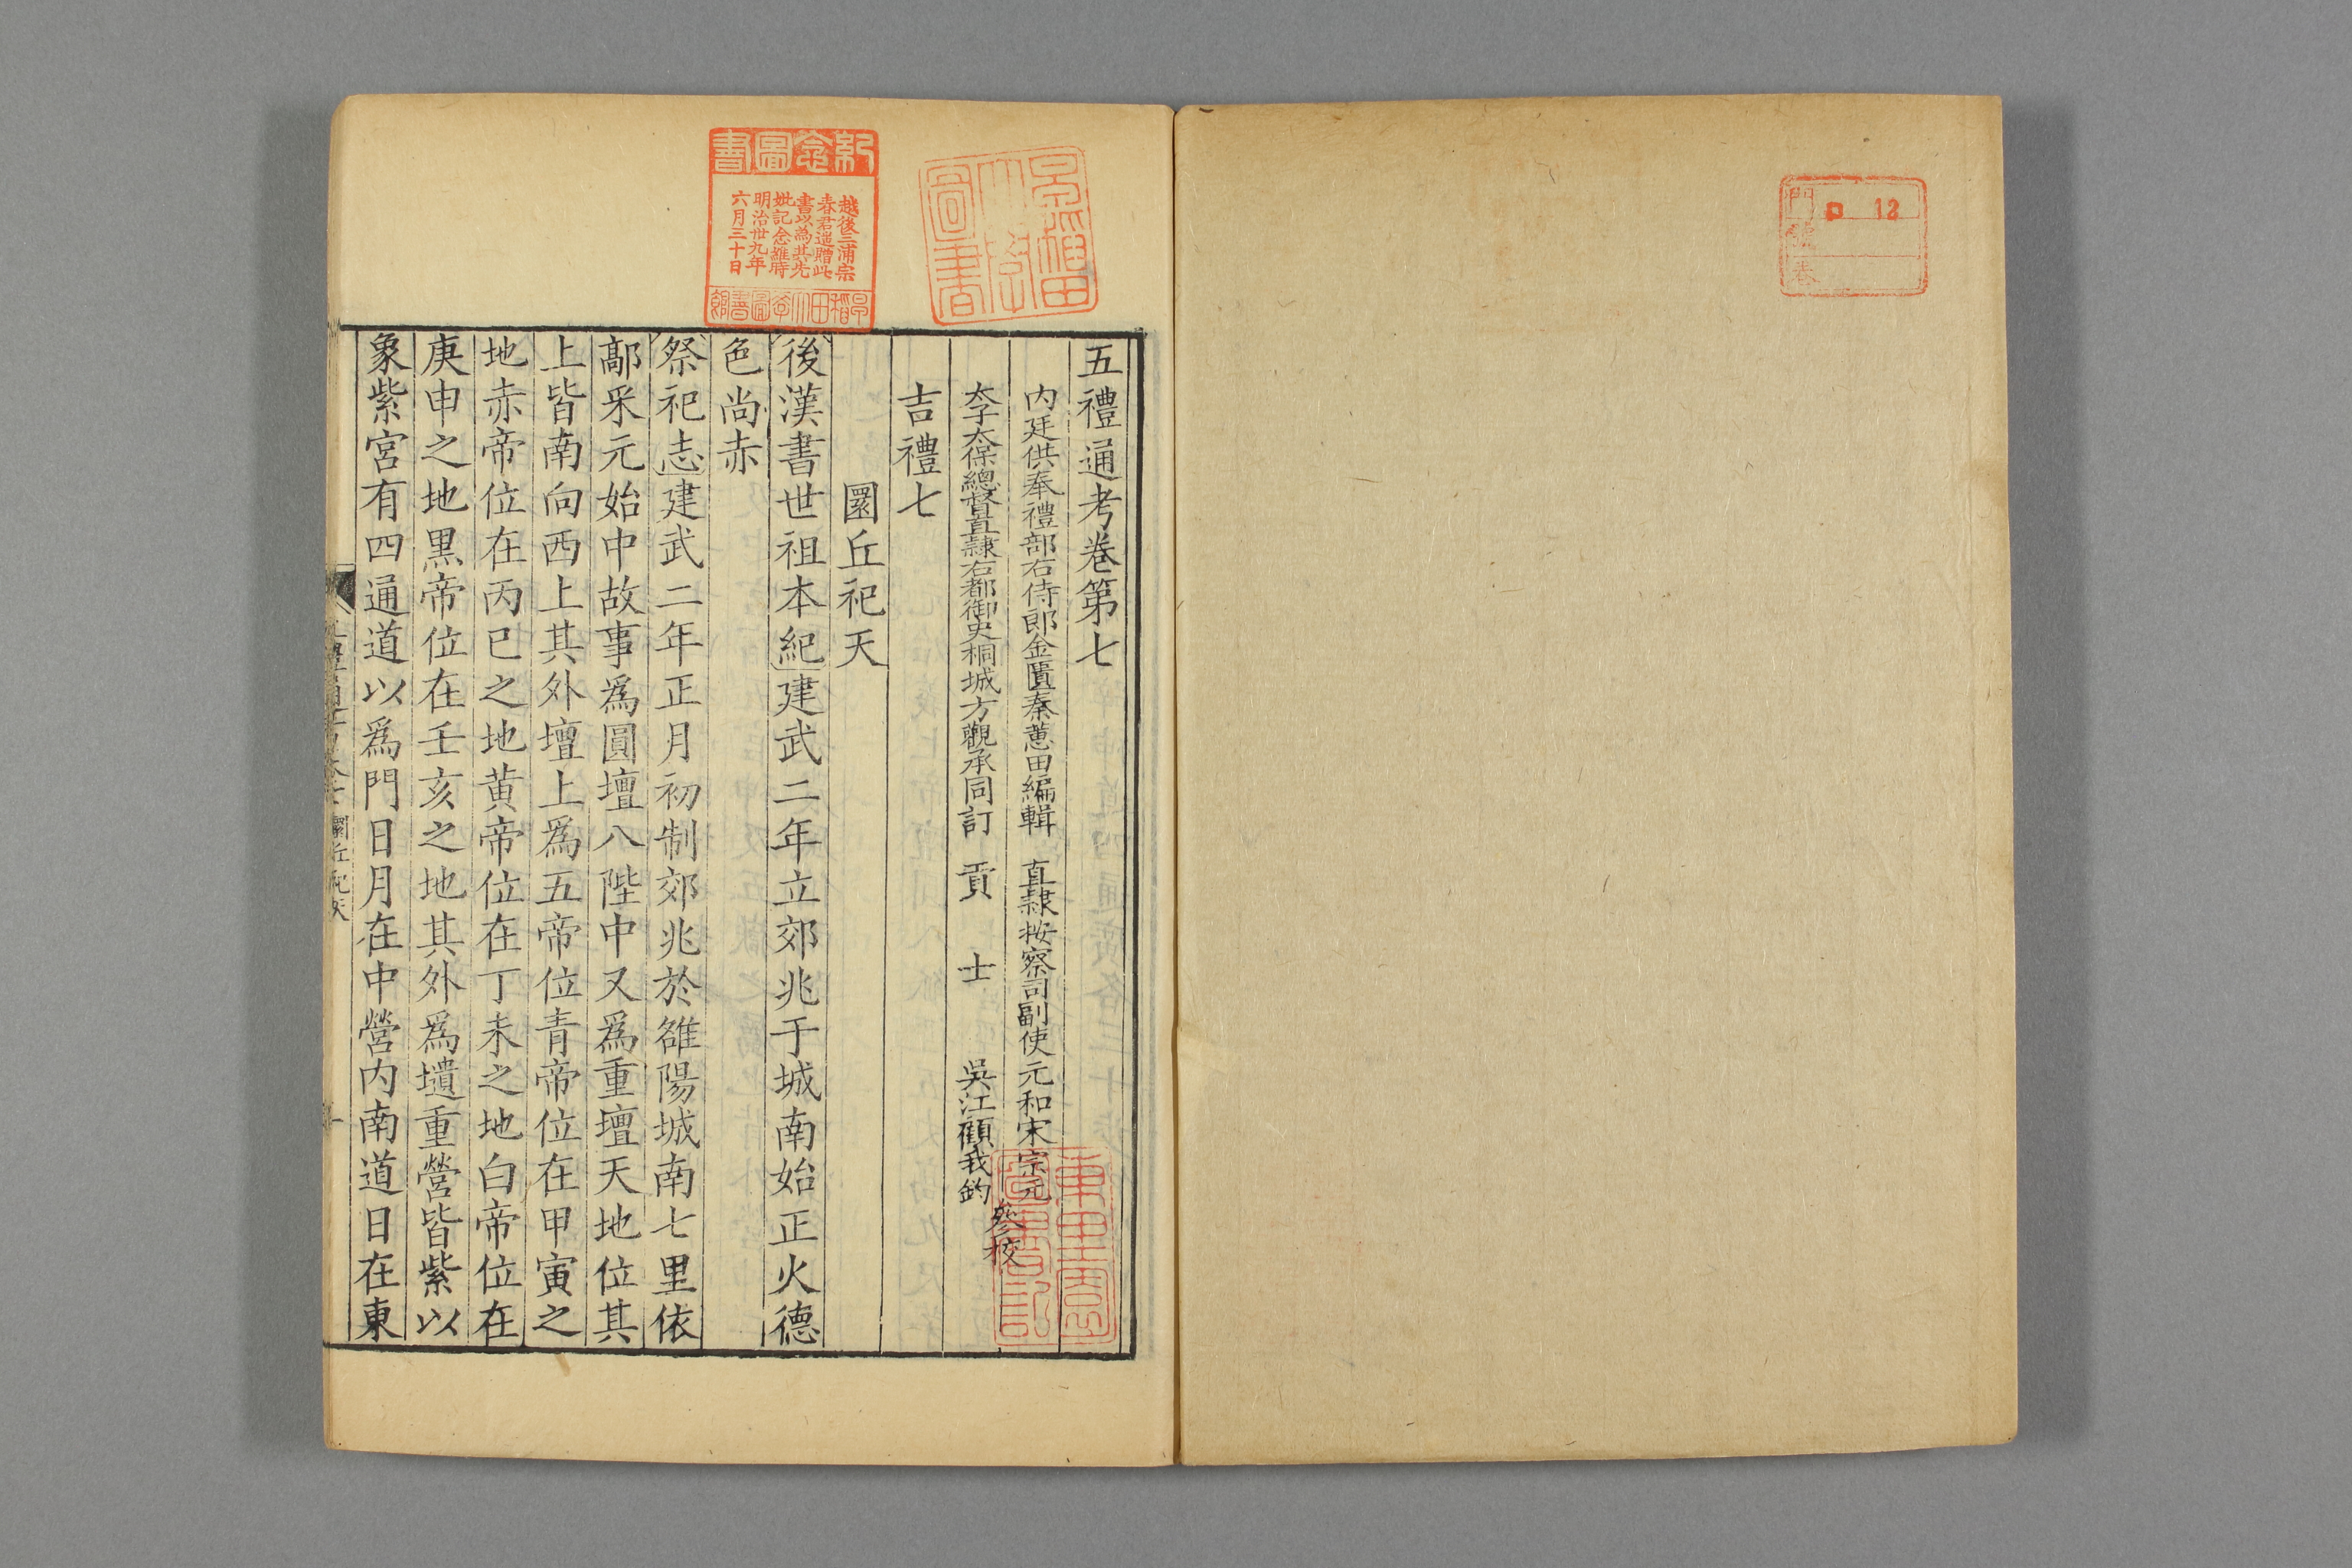 五禮通考卷第七
内廷供奉禮部右侍郎金匱秦蕙田編輯　直隸按察司副使元和宋宗元
太子太保總督直隸右都御史桐城方觀承同訂　貢　士　吳江顧我鈞
參校
吉禮七
圜丘祀天
後漢書世祖本紀建武二年立郊兆于城南始正火德
色尚赤
祭祀志建武二年正月初制郊兆於雒陽城南七里依
鄗采元始中故事爲圓壇八陛中又爲重壇天地位其
上皆南向西上其外壇上爲五帝位青帝位在甲寅之
地赤帝位在丙巳之地黄帝位在丁未之地白帝位在
庚申之地黒帝位在壬亥之地其外爲壝重營皆紫以
象紫宮有四通道以爲門日月在中營内南道日在東
圜丘祀天
紀念圖書
越後三浦宗
春君遥贈此
書以為其先
妣記念維時
明治卅九年
六月三十日
早稻田大學圖書館
早稻田大學圖書
門
號
卷
ロ 12